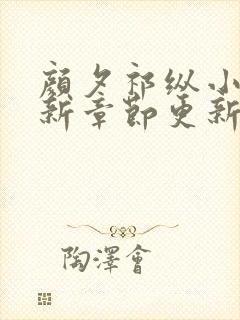 顏夕祁纵小
新章節更新
陶澤會